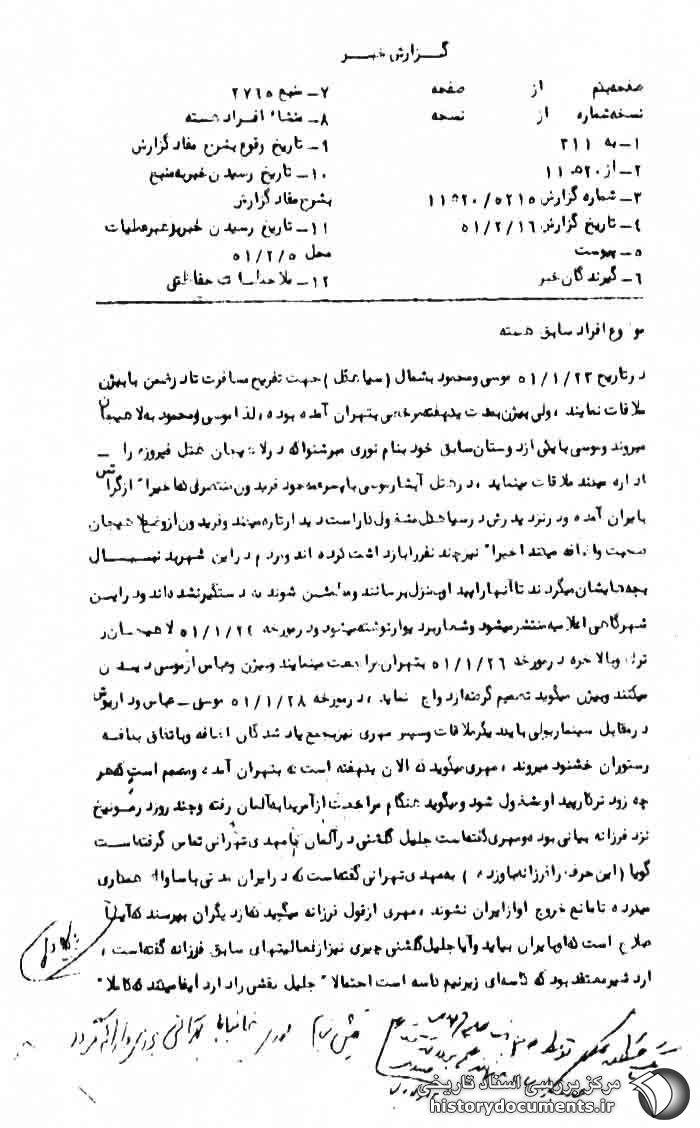 گزارش خبر
صفحه یکم از صفحه
نسخه شماره از نسخه
۱ـ به ۳۱۱
۲ـ از ۱۱ ه‍ ۲۰
۳ـ شماره گزارش ۵۲۱۵ / ۲۰ ه‍ ۱۱
۴ـ تاریخ گزارش ۵۱/۲/۱۶
۵ـ پیوست
۶ـ گیرندگان خبر
۷ـ منبع ۲۷۶۵
۸ـ منشاء افراد هسته
۹ـ تاریخ وقوع بشرح مفاد گزارش
۱۰ـ تاریخ رسیدن خبر به منبع
بشرح مفاد گزارش
۱۱ـ تاریخ رسیدن خبر برهبر عملیات
محل ۵۱/۲/۵
۱۲ـ ملاحظات حفاظتی
موضوع افراد سابق هسته
در تاریخ ۵۱/۱/۲۳ موسی و محمود بشمال (سیاهکل) جهت تفریح مسافرت تا در ضمن با بیژن
ملاقات نمایند، ولی بیژن بمدت یکهفته مرخصی بتهران آمده بوده، لذا موسی و محمود به لاهیجان
میروند و موسی با یکی از دوستان سابق خود بنام نوری که در لاهیجان هتل فیروزه را ـ
اداره میکند ملاقات مینماید، در هتل آبشار موسی با پسر محمود فریدون که اخیرا" از
بایران آمده و در نزد پدرش در سیاهکل مشغول کار است دیدار تازه میکنند و فریدون از وضع لاهیجان
صحبت و اضافه میکند اخیرا" نیز چند نفر را بازداشت کرده اند و مردم در این شهر بدنبال
بچه هایشان میگردند تا آنها را بمنزل برسانند و مطمئن شوند که دستگیر نشده اند و در این
شهر گاهی اعلامیه منتشر میشود و شعار بر دیوار نوشته میشود و در مورخه ۵۱/۱/۲۴ لاهیجان را
ترک و بالاخره در مورخه ۵۱/۱/۲۶ بتهران مراجعت مینمایند و بیژن و عباس از موسی دیدن
میکنند و بیژن میگوید تصمیم گرفته ازدواج نماید، در مورخه ۵۱/۱/۲۸ موسی ـ عباس و داریوش
در مقابل سینما پولی با یکدیگر ملاقات و سپس مهری نیز بجمع یاد شدگان اضافه و باتفاق بکافه
رستوران خشنود میروند، مهری میگوید که الان یکهفته است که بتهران آمده، و مصمم است که هر
چه زودتر کار پیدا و مشغول شود و میگوید هنگام مراجعت از آمریکا به آلمان رفته و چند روز در مونیخ
نزد فرزانه بیاتی بوده و مهری گفته است جلیل گلشنی در آلمان با مهدی تهرانی تماس گرفته است
گویا (این حرف را فرزانه باو زده) به مهدی تهرانی گفته است که در ایران مدتی با ساواک همکاری
میکرده تا مانع خروج او از ایران نشوند، مهری از قول فرزانه میگوید که از دیگران بپرسند که آیا
صلاح است که او بایران بیاید و آیا جلیل گلشنی چیزی نیز از فعالیتهای سابق فرزانه گفته است،
اردشیر معتقد بود که کاسه ای زیر نیم کاسه است احتمالا" جلیل نقشی را دارد ایفا میکند که کاملا"
مرکز بررسی اسناد تاریخی
historydocuments.ir